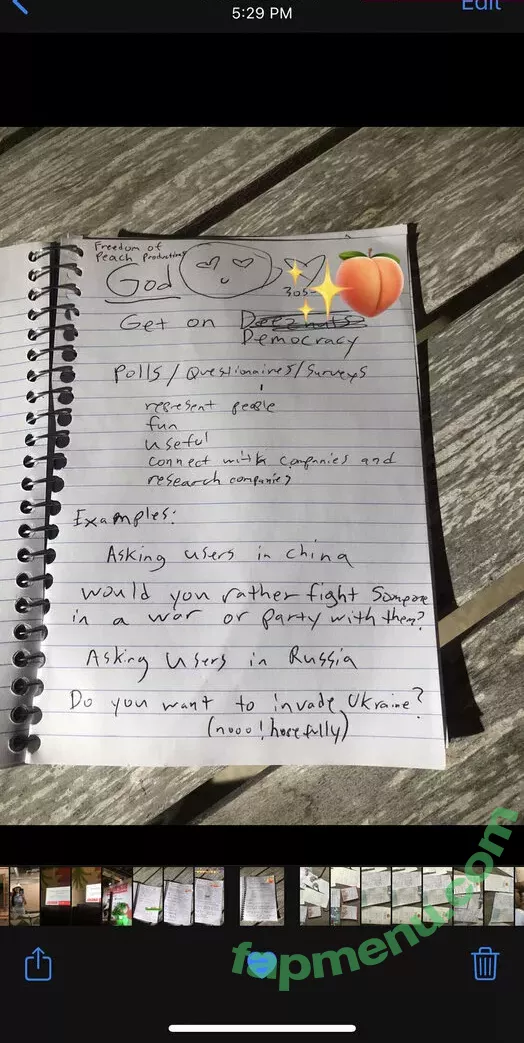 5:29 PM
Edit
Freedom of
Peach Productions
God
305-
Get on Deeznuts
Democracy
Polls/Questionaires/Surveys
represent people
fun
useful
connect with companies and
research companies
Examples:
Asking users in China
would you rather fight someone
in a war or party with them?
Asking Users in Russia
Do you want to invade Ukraine?
(nooo! hopefully)
fapmenu.com